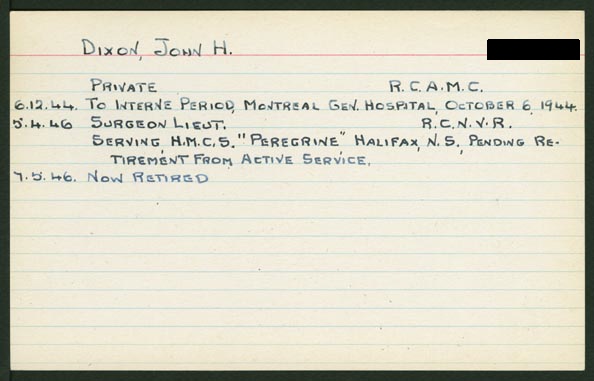 DIXON, JOHN H.
PRIVATE R.C.A.M.C.
6.12.44. TO INTERNE PERIOD, MONTREAL GEN. HOSPITAL, OCTOBER 6, 1944.
5.4.46 SURGEON LIEUT. R.C.N.V.R.
SERVING H.M.C.S. "PEREGRINE" HALIFAX, N.S., PENDING RE-
TIREMENT FROM ACTIVE SERVICE.
7.5.46. NOW RETIRED